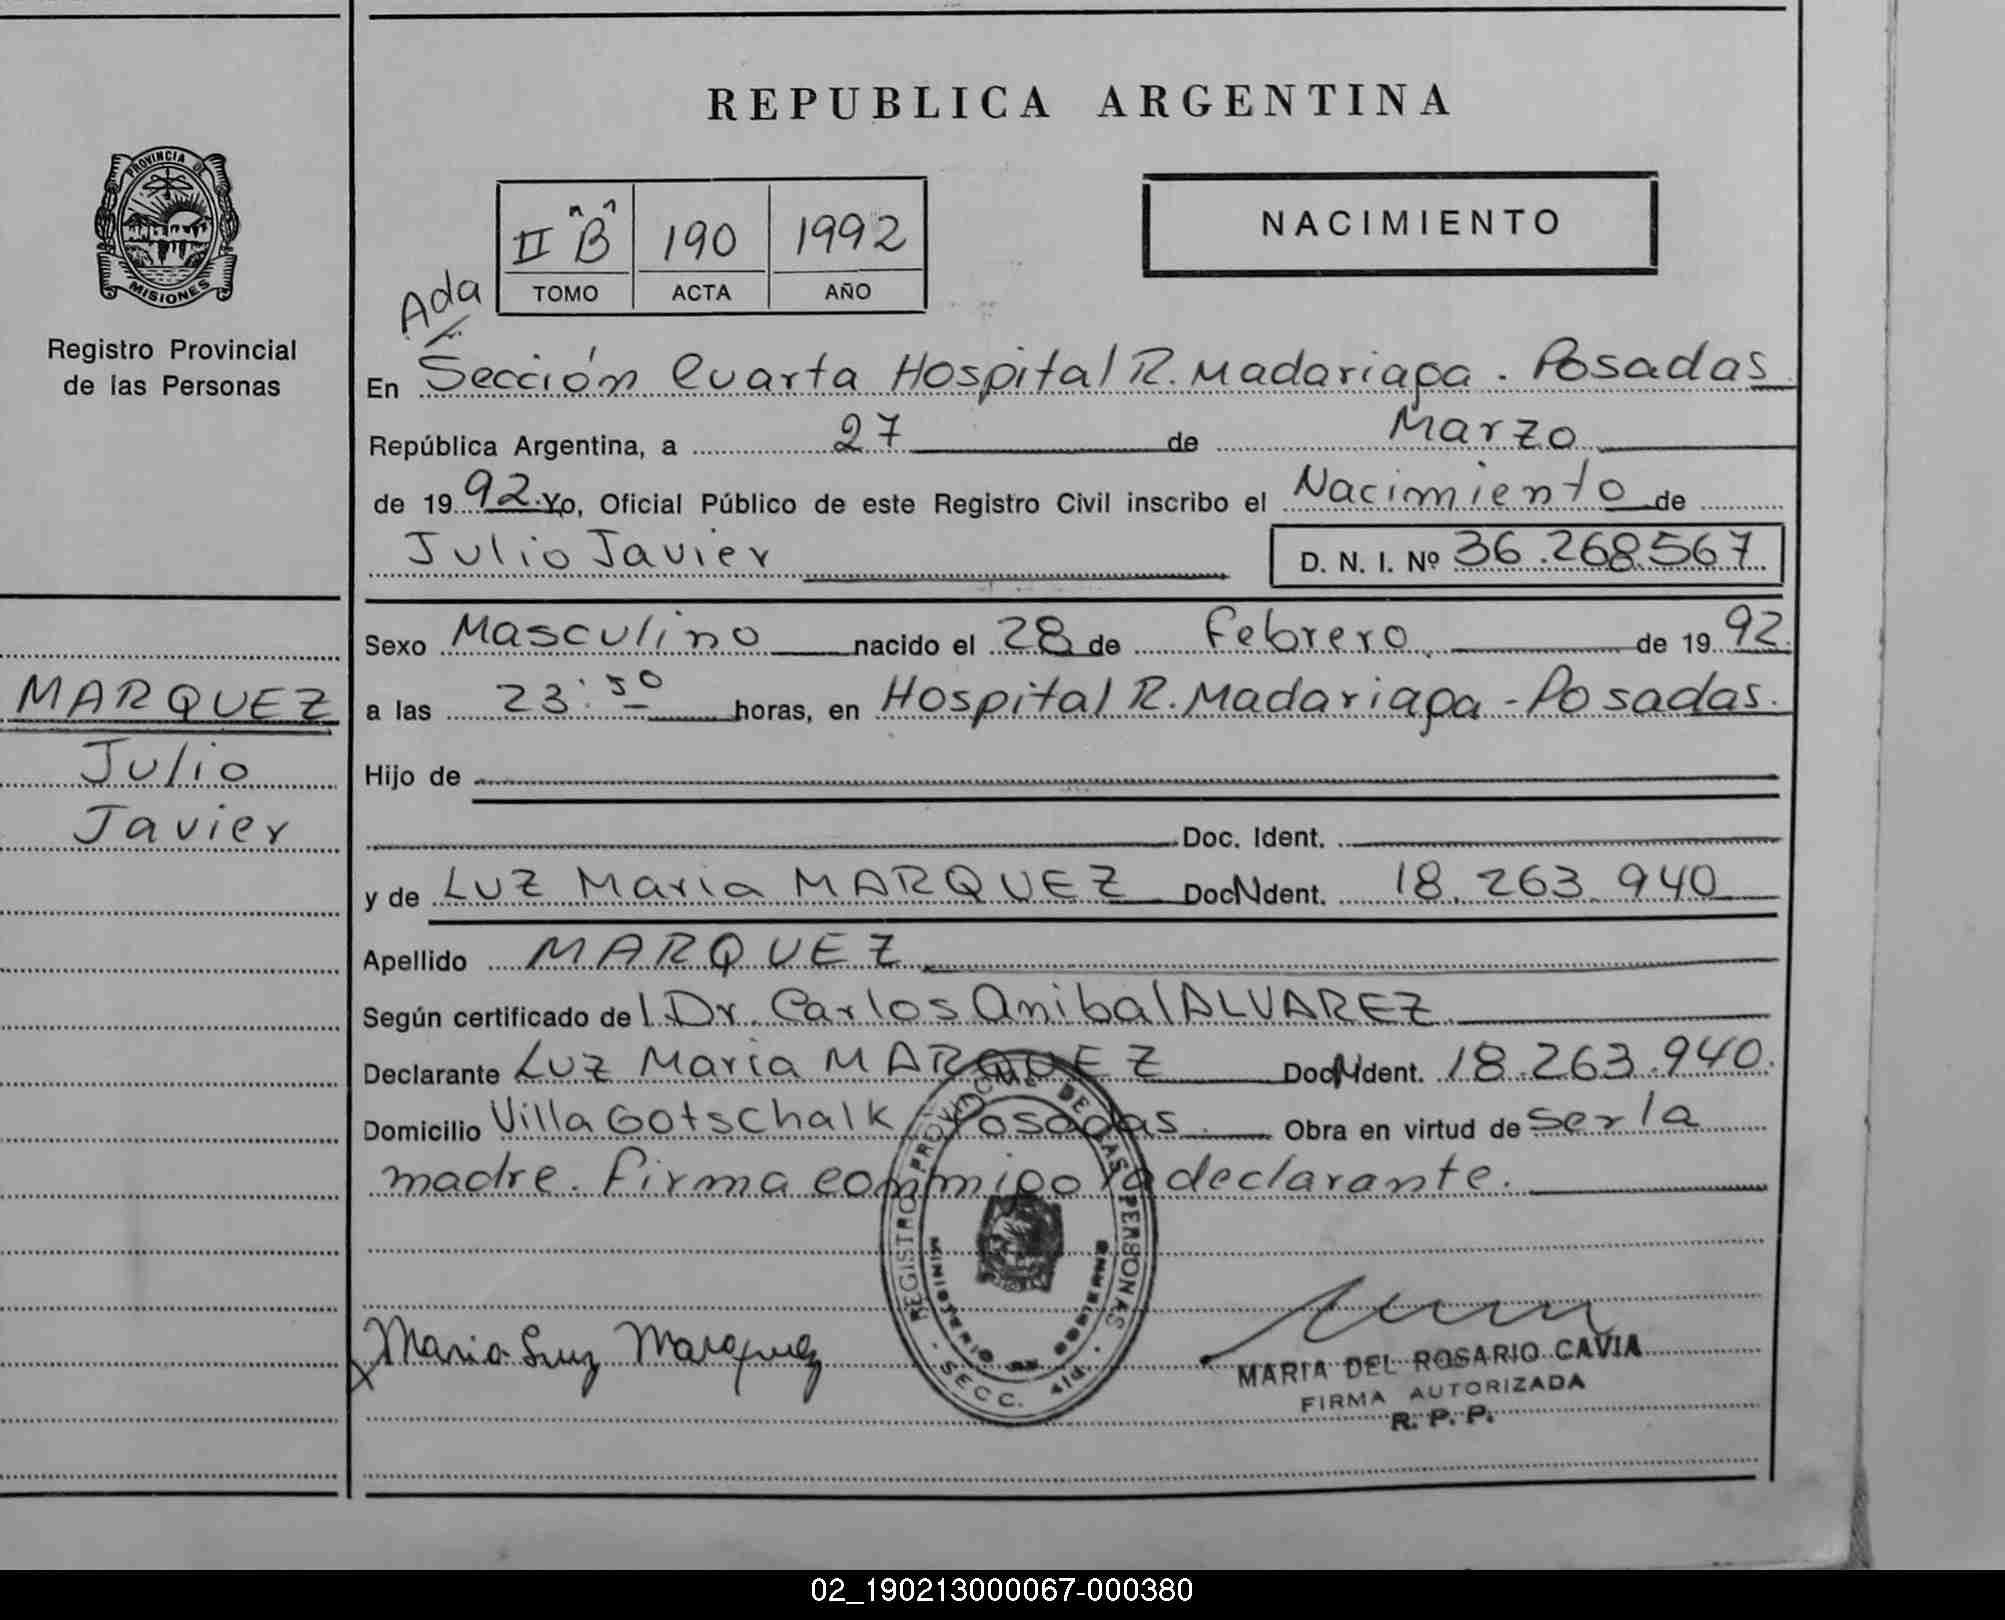 REPUBLICA ARGENTINA
PROVINCIA DE
MISIONES
Registro Provincial
de las Personas
II "B" 190 1992
TOMO ACTA AÑO
NACIMIENTO
Ada
En Sección Cuarta Hospital R. Madariaga. Posadas
República Argentina, a 27 de Marzo
de 1992. Yo, Oficial Público de este Registro Civil inscribo el Nacimiento de
Julio Javier D. N. I. Nº 36.268.567
Sexo Masculino nacido el 28 de Febrero de 1992.
a las 23:50 horas, en Hospital R. Madariaga - Posadas.
MARQUEZ
Julio
Javier
Hijo de
Doc. Ident.
y de Luz Maria MARQUEZ Doc N dent. 18.263.940
Apellido MARQUEZ
Según certificado del Dr. Carlos Anibal ALVAREZ
Declarante Luz Maria MARQUEZ Doc N dent. 18.263.940.
Domicilio Villa Gotschalk Posadas. Obra en virtud de ser la
madre. Firma conmigo la declarante.
REGISTRO PROVINCIAL DE LAS PERSONAS
MINISTERIO DE GOBIERNO
SECC. 4ta.
Maria Luz Marquez
MARIA DEL ROSARIO CAVIA
FIRMA AUTORIZADA
R. P. P.
02_190213000067-000380